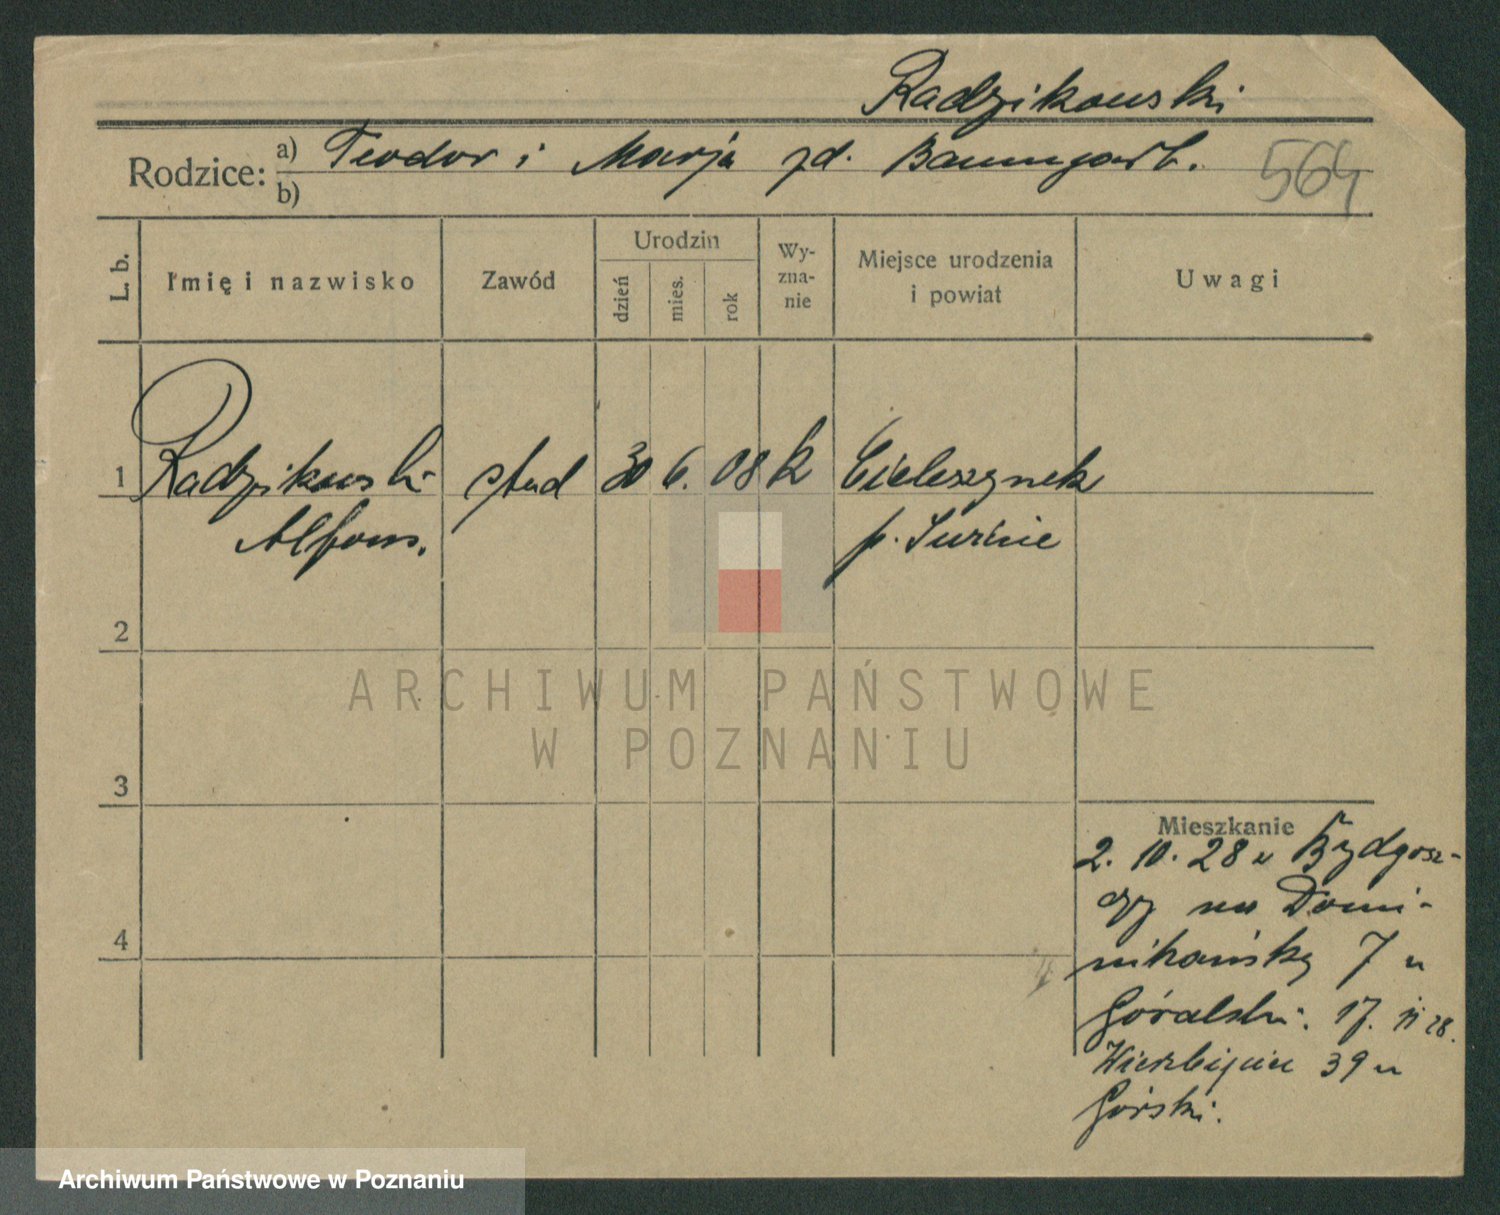 Radzikowski
Rodzice: a) Teodor i Marja zd. Baumgart.
b)
564
L. b.
Imię i nazwisko
Zawód
Urodzin
dzień
mies.
rok
Wy-
zna-
nie
Miejsce urodzenia
i powiat
Uwagi
1 Radzikowski stud 30 6. 08 k Cieleszynek
Alfons. p. Świecie
2
3
4
Mieszkanie
2. 10. 28 z Bydgosz-
czy na Domi-
nikańską 7 u
Góralski. 17. 11 28.
Wierzbięcice 39 u
Górski.
ARCHIWUM PAŃSTWOWE
W POZNANIU
Archiwum Państwowe w Poznaniu